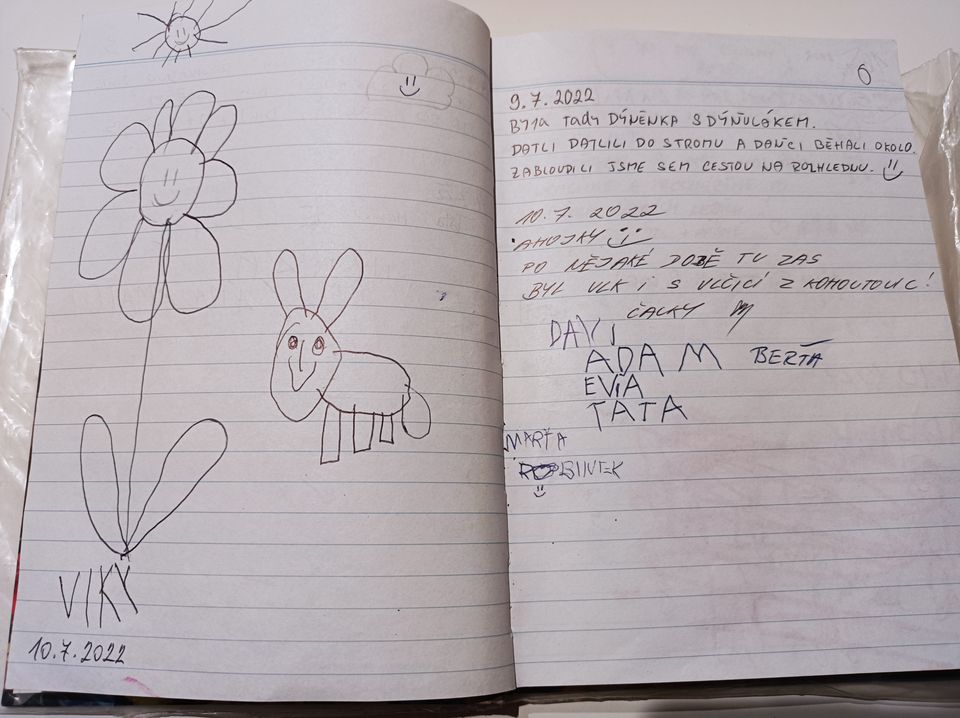 VIKY
10.7.2022
6
9.7.2022
Byla tady DÝNĚNKA S DÝŇULÁKEM.
DATLI DATLILI DO STROMU A DANČI BĚHALI OKOLO.
ZABLOUDILI JSME SEM CESTOU NA ROZHLEDNU.
10.7.2022
AHOJKY
PO NĚJAKÉ DOBĚ TU ZAS
BYL VLK I S VLČICÍ Z KOHOUTOVIC!
ČAUKY
DAVI
ADAM BERŤA
EVIA
TATA
MARŤA
ROBINEK